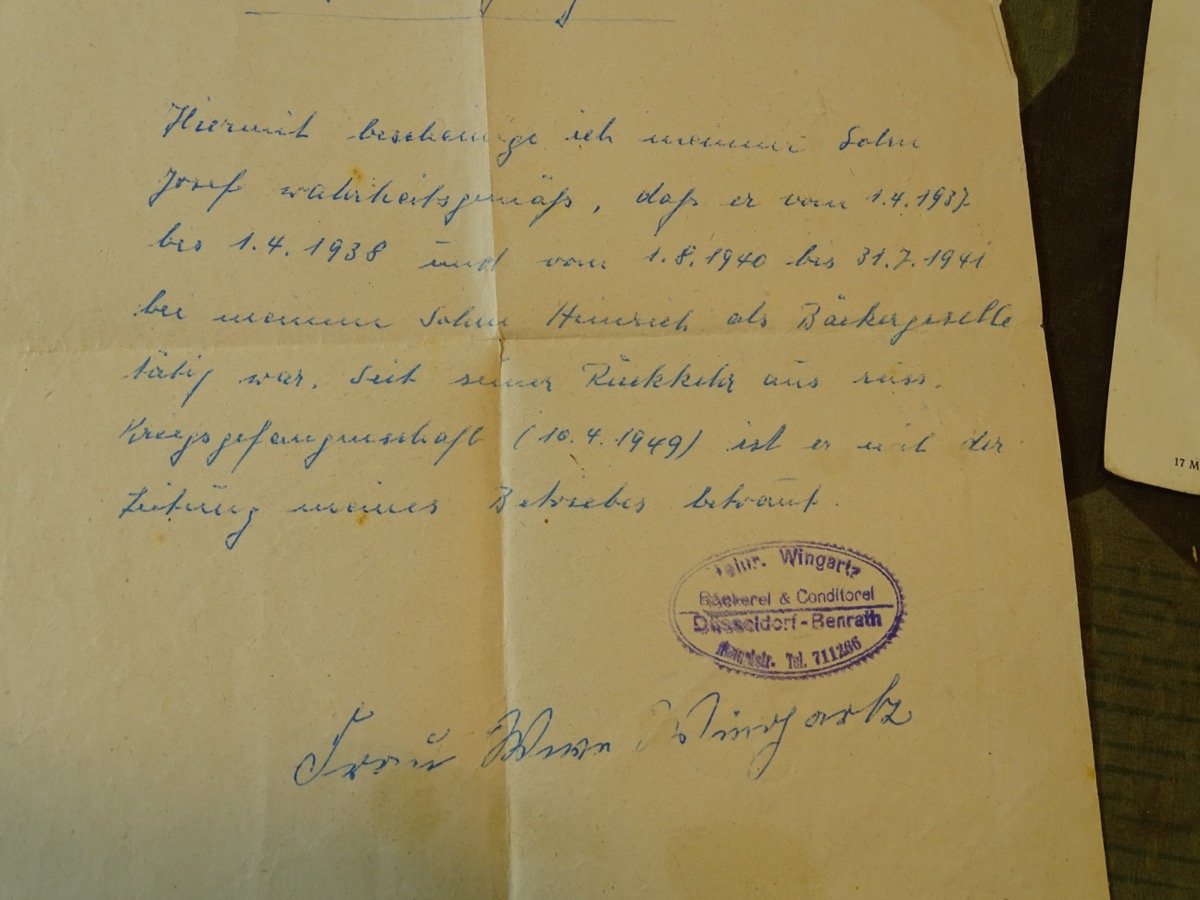 Hiermit bescheinige ich meinem Sohn
Josef wahrheitsgemäß, daß er vom 1.4.1937
bis 1.4.1938 und vom 1.8.1940 bis 31.7.1941
bei meinem Sohne Heinrich als Bäckergeselle
tätig war. Seit seiner Rückkehr aus russ.
Kriegsgefangenschaft (10.4.1949) ist er mit der
Leitung meines Betriebes betraut.
Heinr. Wingartz
Bäckerei & Conditorei
Düsseldorf-Benrath
Tel. 711266
Frau Wwe Wingartz
17 M